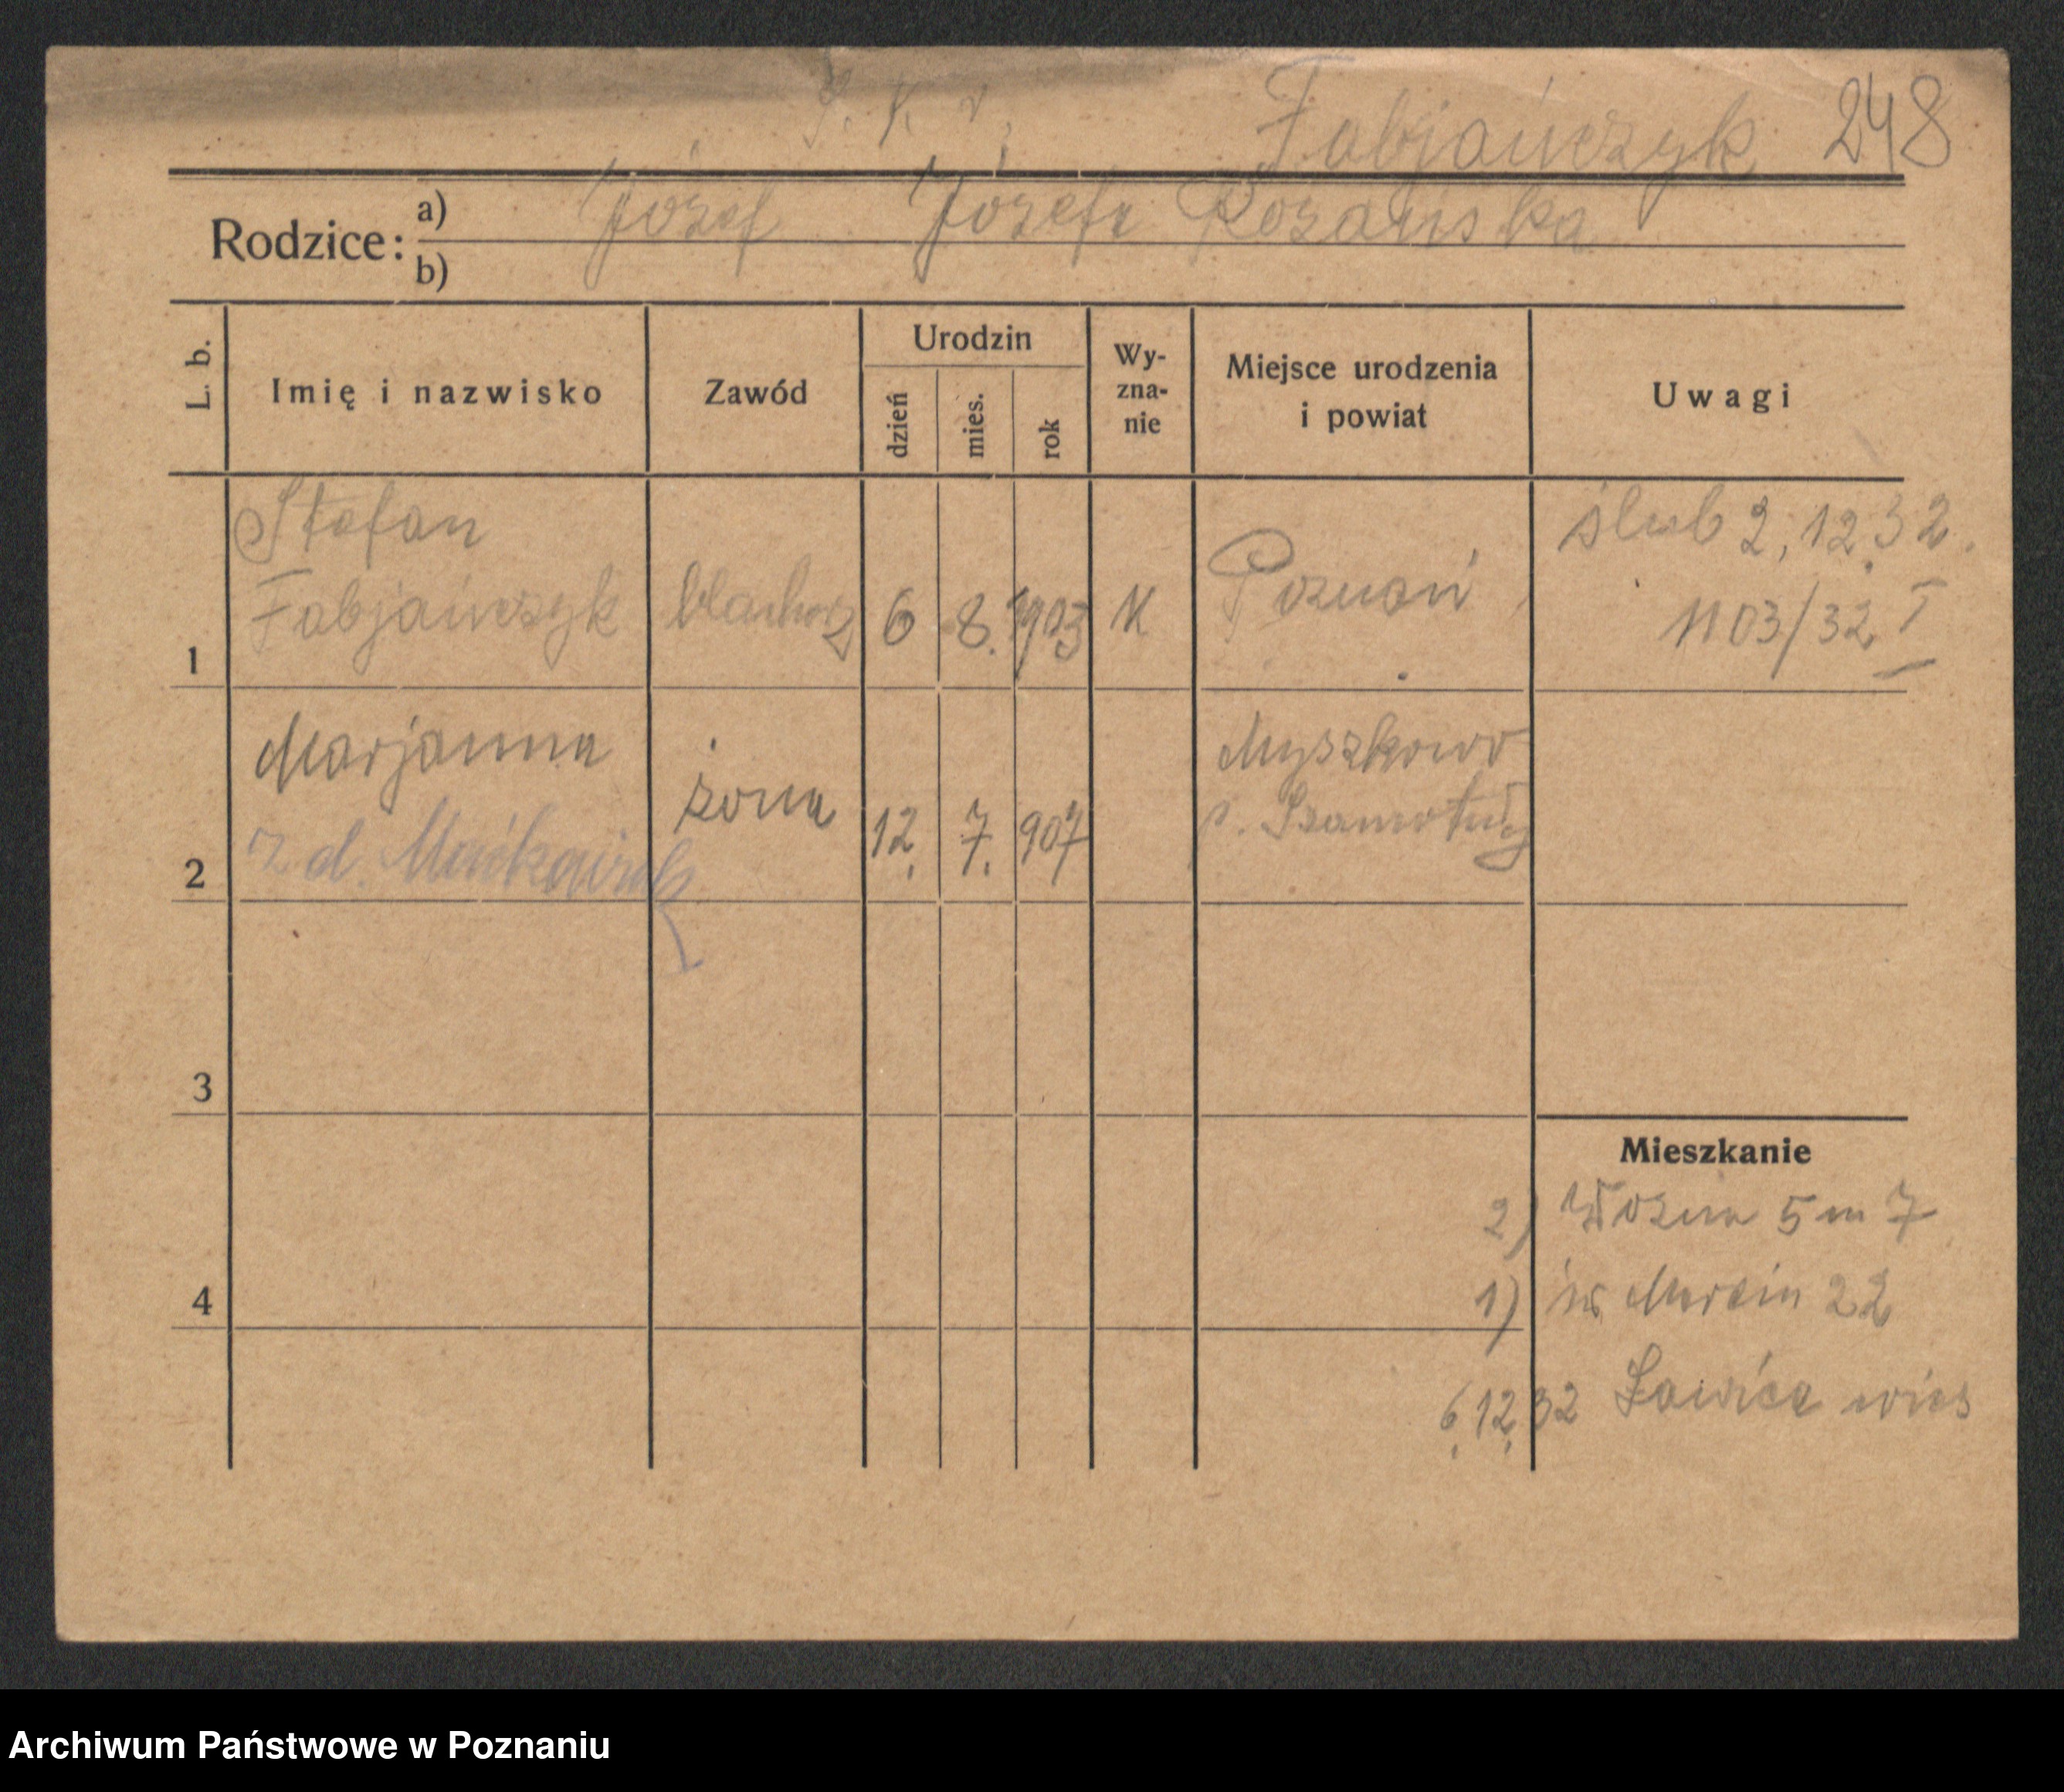 Fabjańczyk 248
Rodzice:
a) Józef Józefa Rozańska
b)
L. b.
Imię i nazwisko
Zawód
Urodzin
dzień
mies.
rok
Wy-
zna-
nie
Miejsce urodzenia
i powiat
Uwagi
1
Stefan
Fabjańczyk
blacharz
6
8.
1903
K
Poznań
ślub 2.12.32.
1103/32 I
2
Marjanna
z d.
żona
12.
7.
907
Myszkowo
p. Szamotuły
3
4
Mieszkanie
2) Wozna 5 m 7
1) św Marcin 22
6.12.32 Ławica wieś
Archiwum Państwowe w Poznaniu